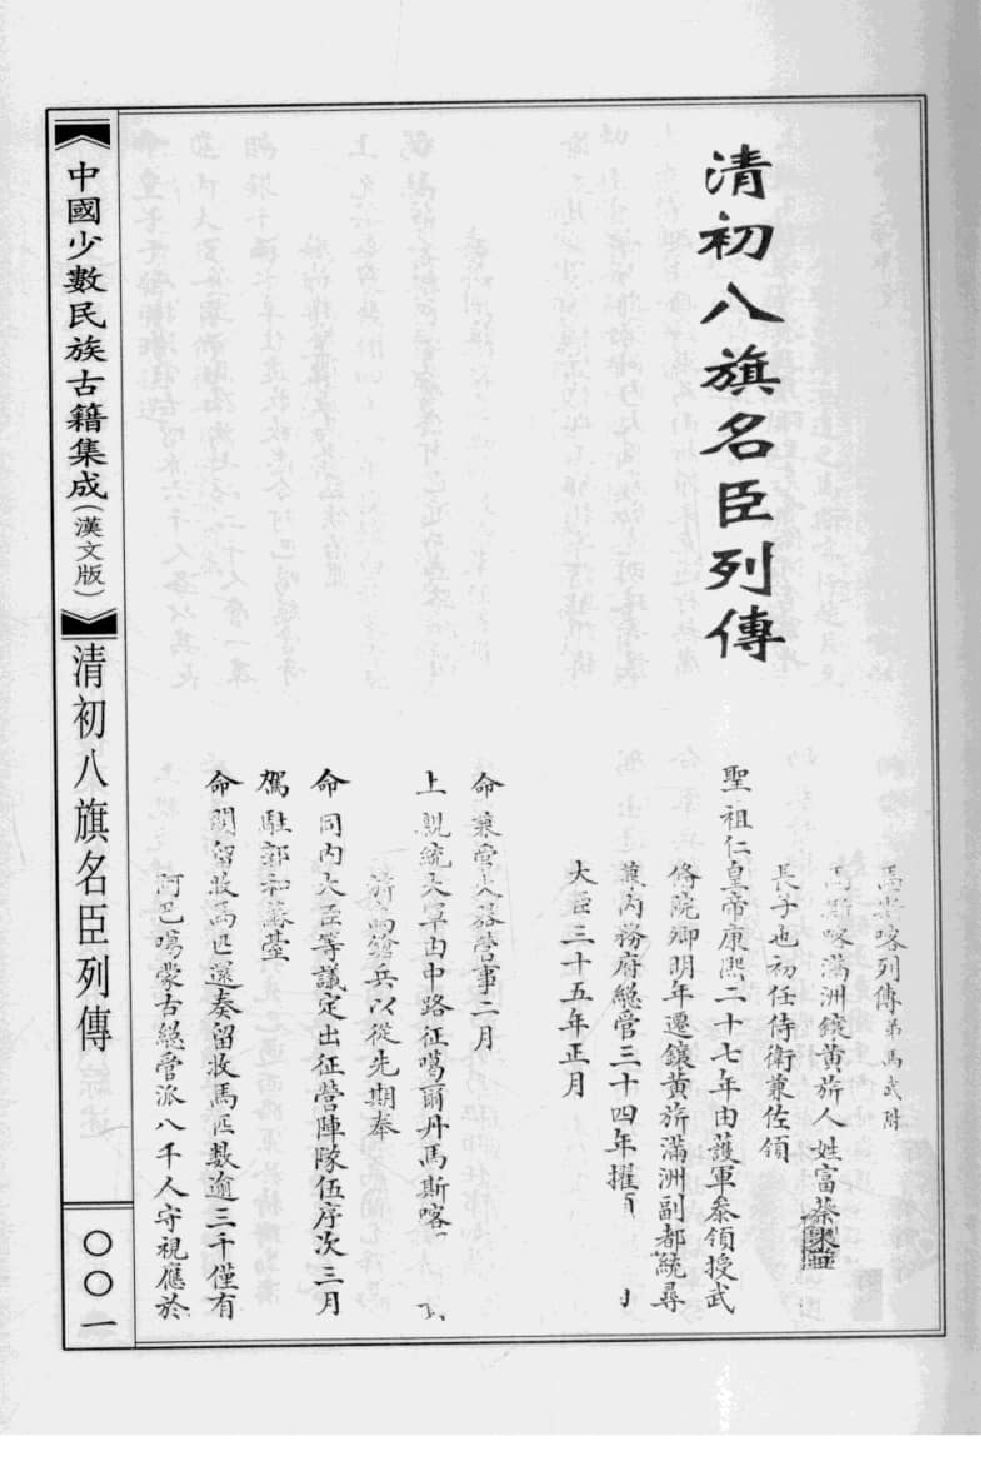 清初八旗名臣列傳
馬斯喀列傳弟馬武附
馬斯喀滿洲鑲黃旂人姓富察
長子也初任侍衛兼佐領
聖祖仁皇帝康熙二十七年由護軍叅領授武
備院卿明年遷鑲黃旂滿洲副都統尋
兼內務府緫管三十四年擢
大臣三十五年正月
命兼管火器營事二月
上親統大軍由中路征噶爾丹馬斯喀
請而發兵以從先期奉
命同內大臣等議定出征營陣隊伍序次三月
駕駐郭和蘇臺
命閱留牧馬匹還奏留牧馬匹數逾三千僅有
阿巴噶蒙古緫管派八千人守視應於
《中國少數民族古籍集成(漢文版)》
清初八旗名臣列傳
〇〇一